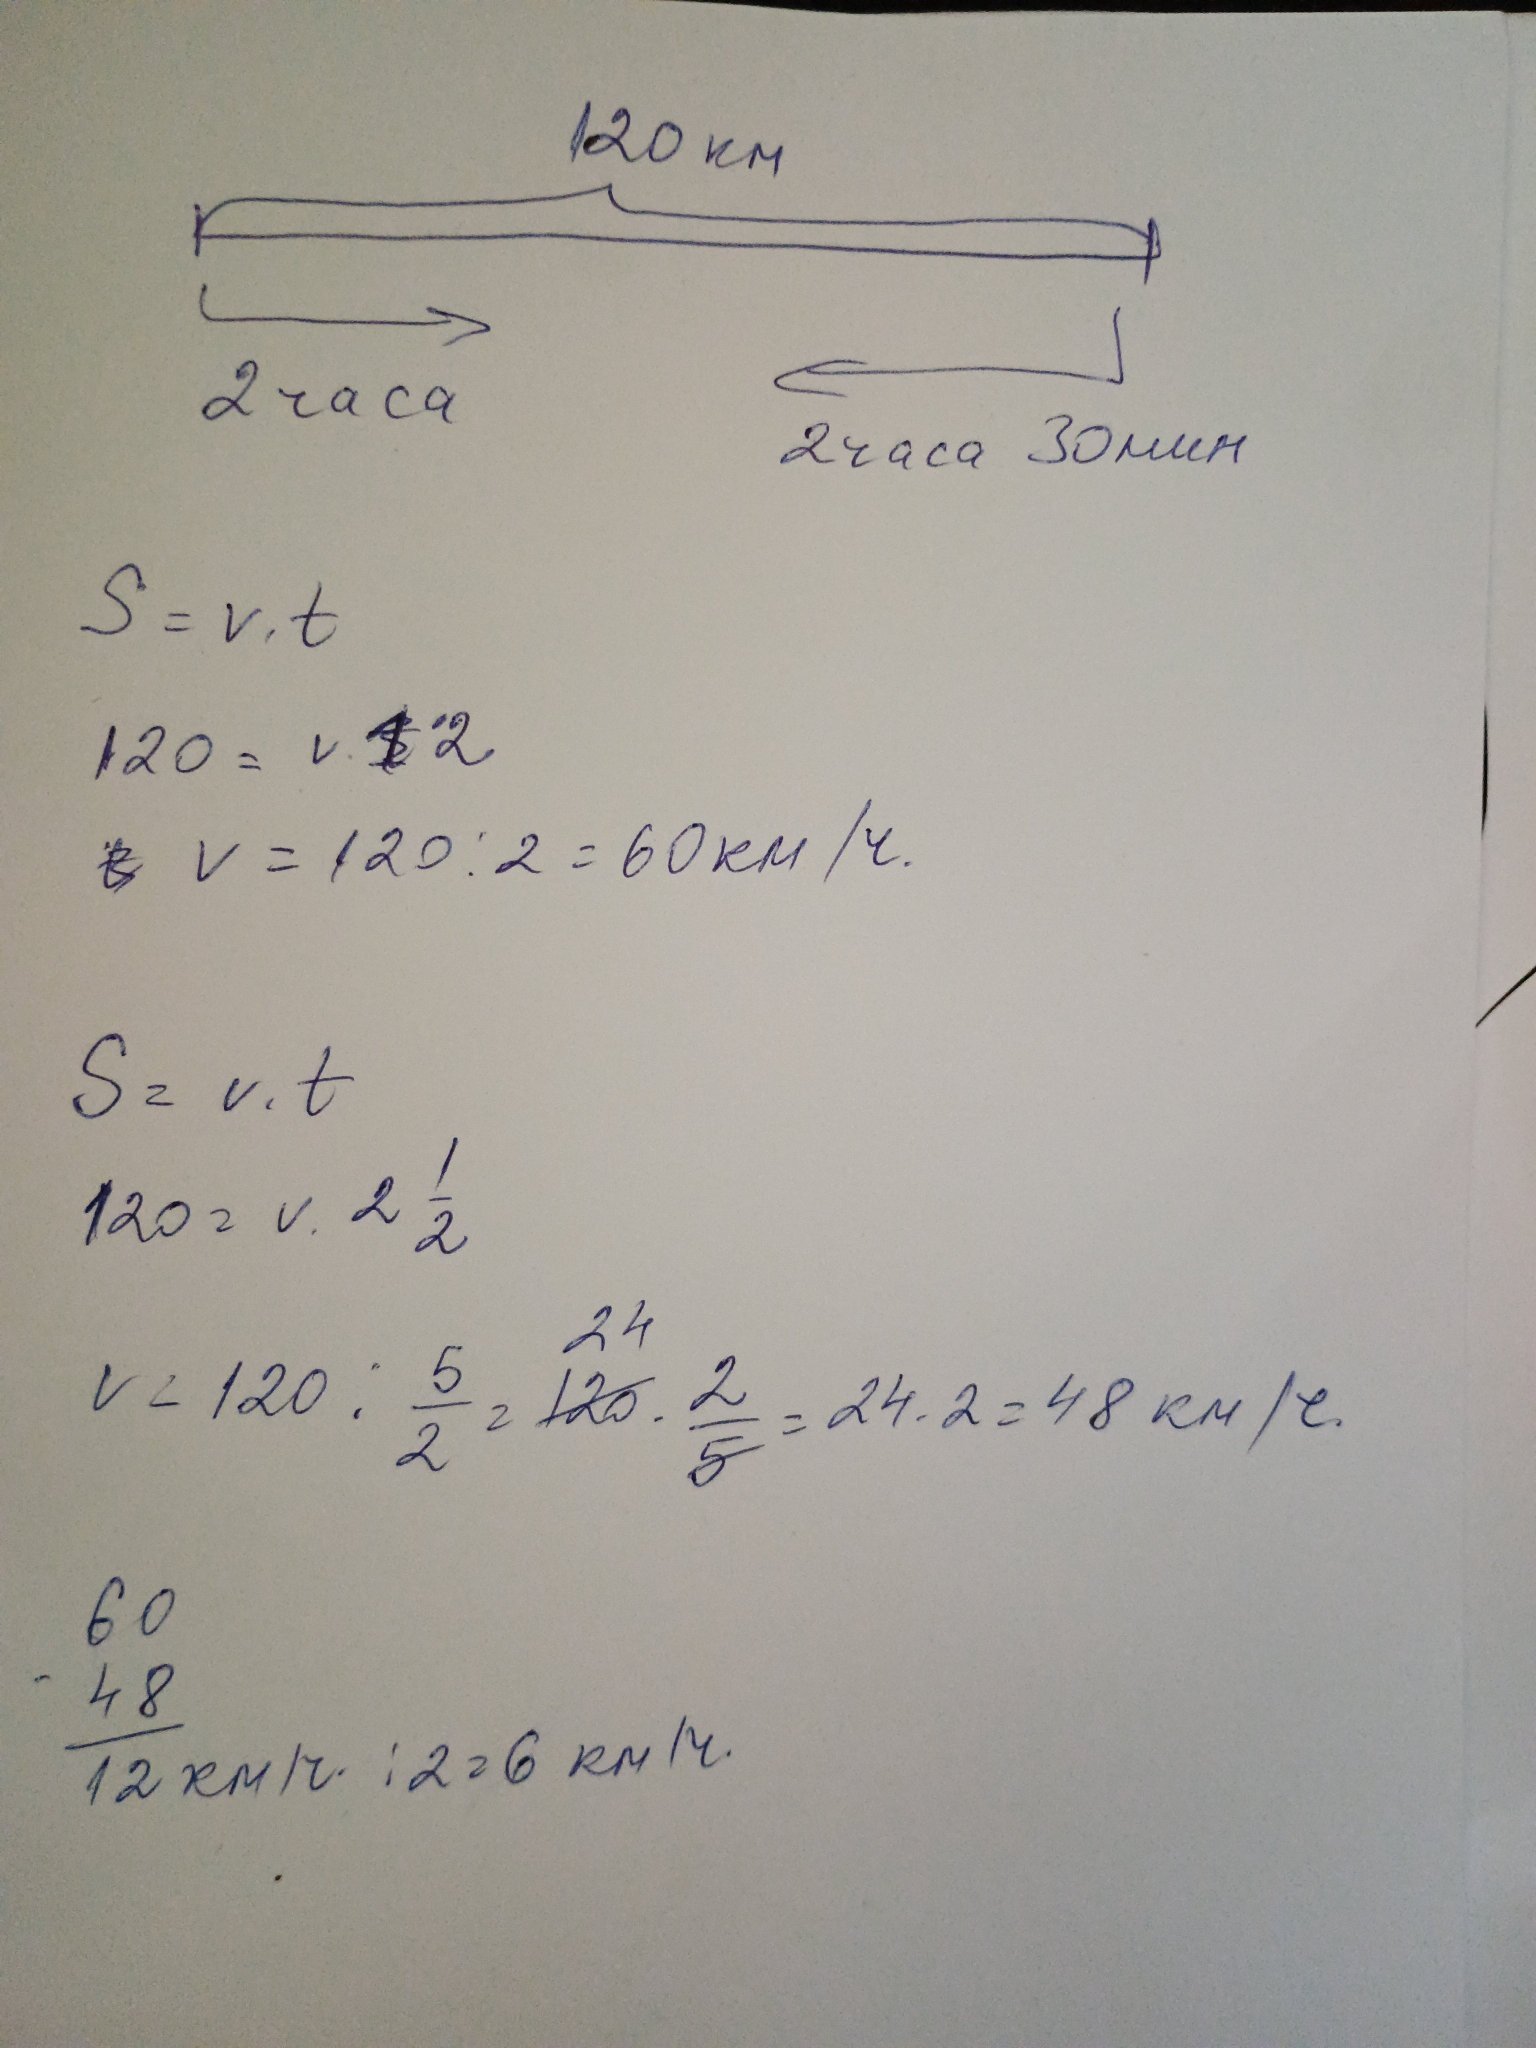 120 км
2 часа
2 часа 30 мин
S = v.t
120 = v. 2
v = 120 : 2 = 60 км/ч.
S = v.t
120 = v. 2 1/2
24
v = 120 : 5/2 = 120 . 2/5 = 24 . 2 = 48 км/ч.
60
- 48
12 км/ч. : 2 = 6 км/ч.